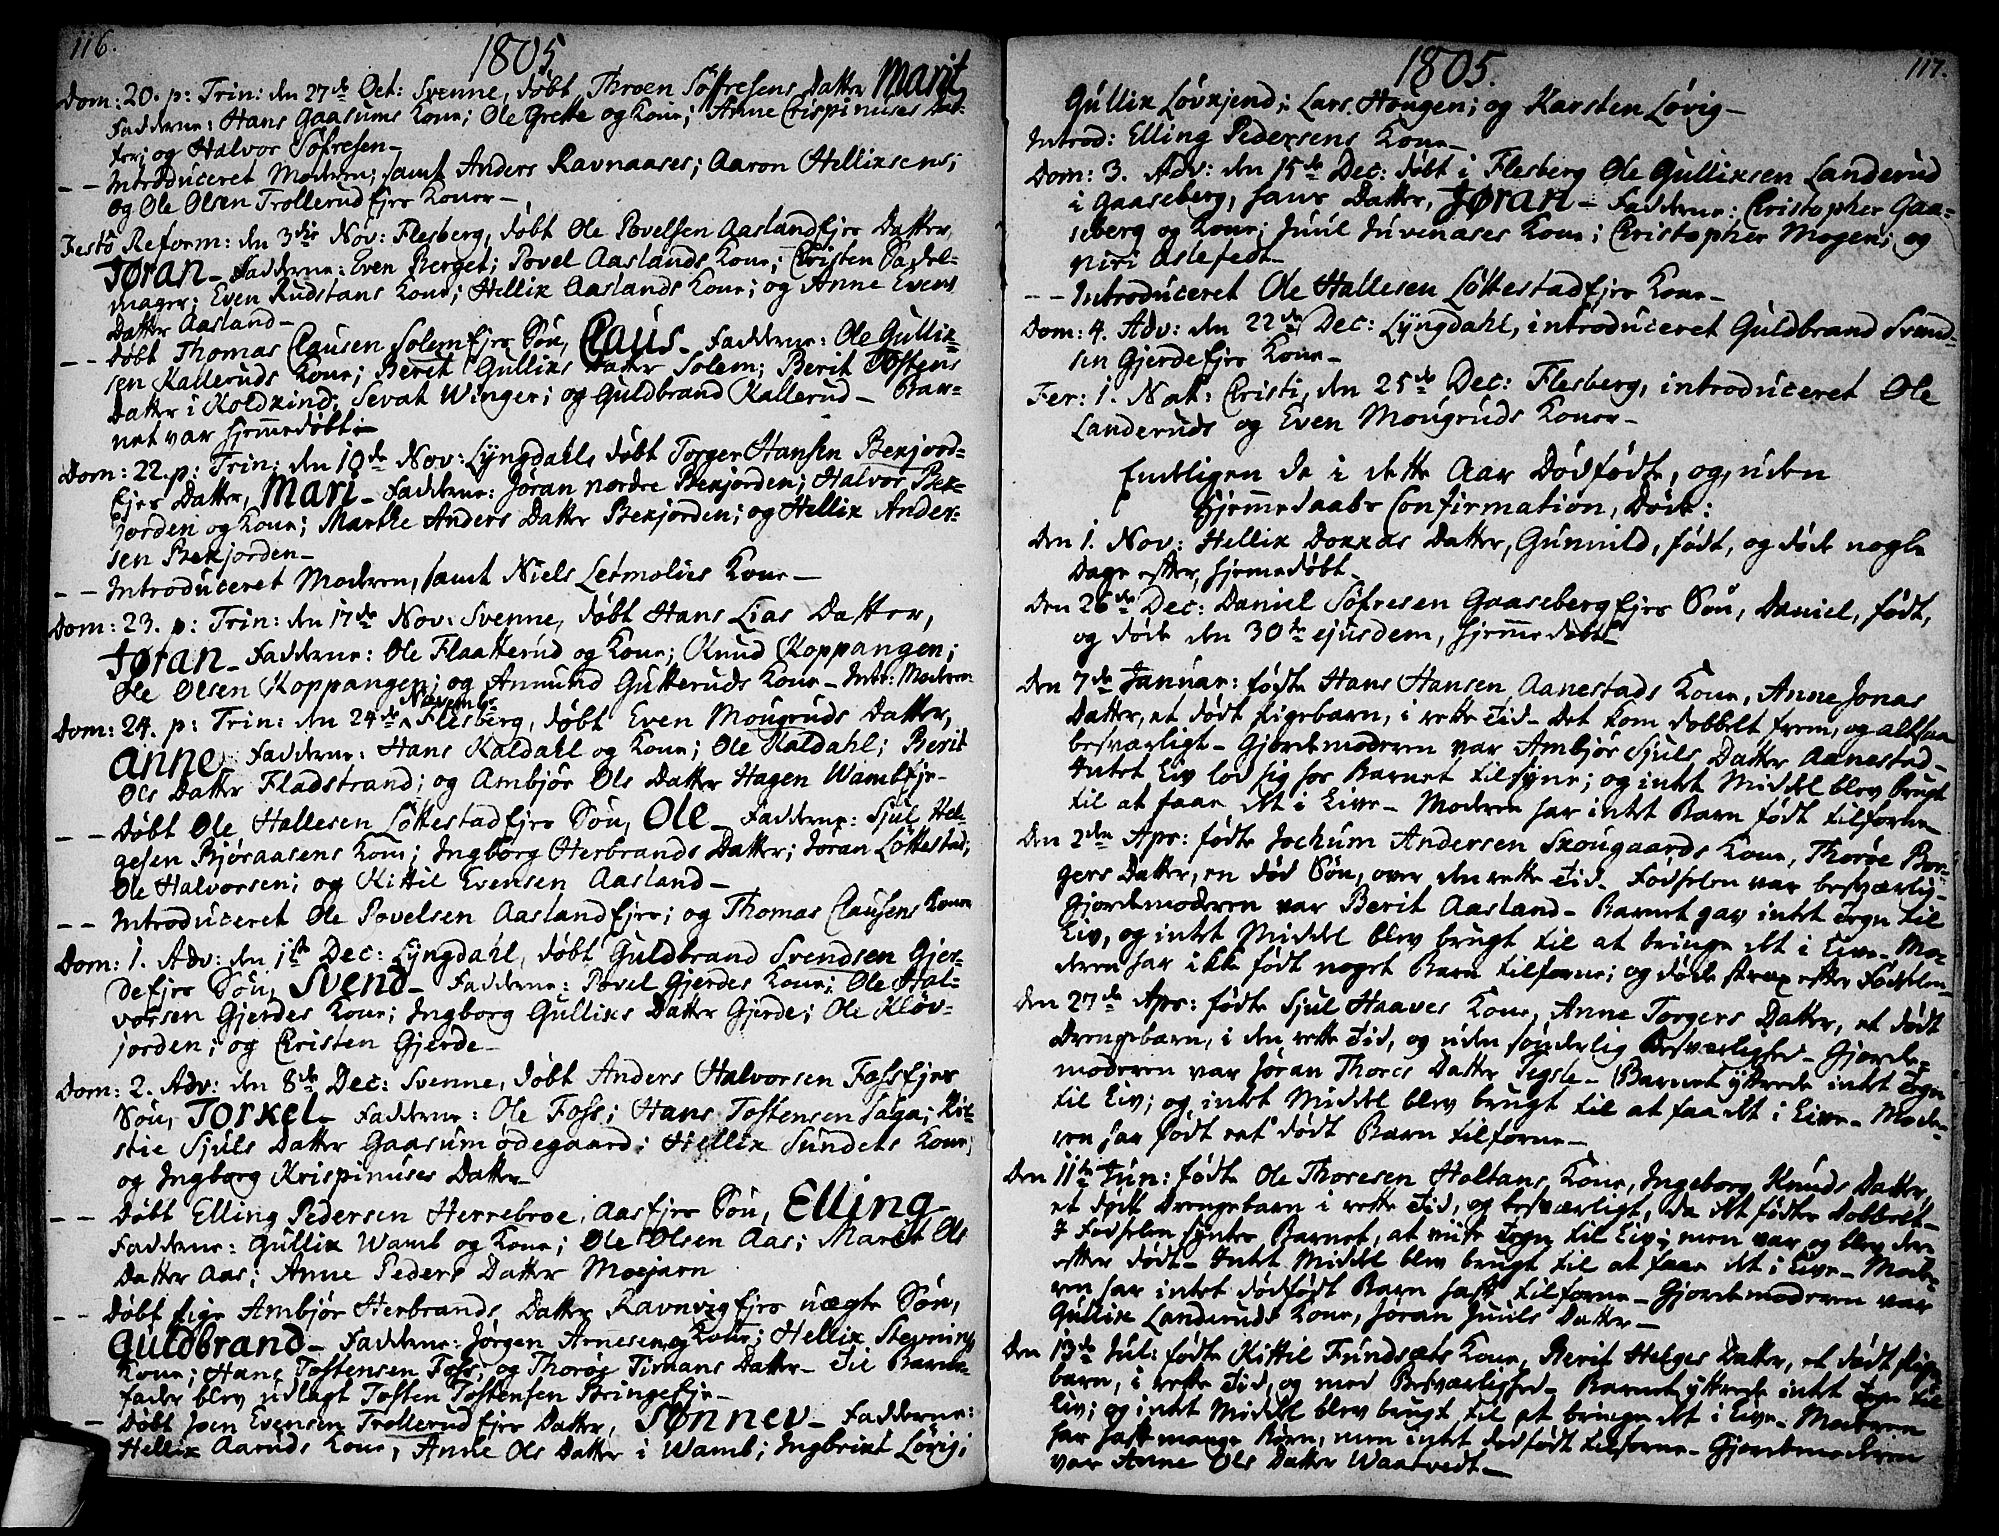 116.
1805
Dom: 20. p: Trin: den 27de Oct: Svenne, døbt Throen Søfresens Datter Marit
Fadderne: Hans Gaasums Kone; Ole Grette og Kone; Anne Crispinuses Dat-
ter; og Halvor Søfresen—
– – Introduceret Moderen; samt Anders Ravnaases; Aaron Hellixsens;
og Ole Olsen Trollerud Ejes Koner—
Festo Reform: den 3die Nov: Flesberg, døbt Ole Povelsen Aasland Ejes Datter,
Jøran— Fadderne: Even Berget; Povel Aaslands Kone; Cristen Sadel-
mager; Even Rudstans Kone; Hellix Aaslands Kone; og Anne Evens
Datter Aasland—
– – Døbt Thomas Clausen Solem Ejes Søn, Claus— Fadderne: Ole Gullix-
sen Kalleruds Kone; Berit Gullixs Datter Solem; Berit Tostens
Datter i Koldkind; Sevat Winger; og Guldbrand Kallerud— Bar-
net var hjemmedøbt—
Dom: 22. p: Trin: den 10de Nov: Lyngdahls døbt Torger Hansen Bekjord-
Ejes Datter, Mari— Fadderne: Jøran nordre Bekjorden; Halvor Bek-
jorden og Kone; Marthe Anders Datter Bekjorden; og Hellix Ander-
sen Bekjorden—
– – Introduceret Moderen, samt Niels Lesmølies Kone—
Dom: 23. p: Trin: den 17de Nov: Svenne, døbt Hans Lias Datter,
Jøran— Fadderne: Ole Flaatterud og Kone; Knud Koppangen;
Ole Olsen Koppangen; og Amund Gutteruds Kone— Intr: Moderen
Dom: 24. p: Trin: den 24de Novemb: Flesberg, døbt Even Mougruds Datter,
Anne, Fadderne: Hans Kaldahl og Kone; Ole Kaldahl; Berit
Ols Datter Fladstrand; og Ambjør Ols Datter Hagen Wamb Eje—
– – Døbt Ole Hallesen Løttestad Ejes Søn, Ole— Fadderne: Sjul Hel-
gesen Bjøraasens Kone; Ingborg Herbrands Datter; Jøran Løttestad;
Ole Halvorsen; og Kittil Evensen Aasland—
– – Introduceret Ole Povelsen Aasland Ejes; og Thomas Clausens Koner
Dom: 1. Adv: den 1ste Dec: Lyngdahl, døbt Guldbrand Svendsen Gjer-
de Ejes Søn, Svend— Fadderne: Povel Gjerdes Kone; Ole Hal-
vorsen Gjerdes Kone; Ingborg Gullixs Datter Gjerde; Ole Kløv-
jorden; og Cristen Gjerde—
Dom: 2. Adv: den 8de Dec: Svenne, døbt Anders Halvorsen Foss Ejes
Søn, Torkel— Fadderne: Ole Foss; Hans Tostensen Saga; Kir-
stie Sjuls Datter Gaasumødegaard; Hellix Sundets Kone;
og Ingborg Krispinuses Datter—
– – Døbt Elling Pedersen Herrebroe, Aas Ejes Søn, Elling—
Fadderne: Gullix Wamb og Kone; Ole Olsen Aas; Marit Ols
Datter Aas; Anne Peders Datter Moejarn
– – Døbt Pige Ambjør Herbrands Datter Ravnvig Ejes uægte Søn,
Guldbrand— Fadderne: Jørgen Arnesen og Kone; Hellix Stevnings
Kone; Hans Tostensen Foss; og Thoroe Timans Datter— Til Barne-
fader blev udlagt Tosten Tostensen Bringe Eje—
– Døbt Joen Evensen Trollerud Ejes Datter, Sønnev— Fadderne:
Hellix Aaruds Kone; Anne Ols Datter i Wamb; Ingbrikt Løvig;
117.
1805.
Gullix Løvkjend; Lars Hougen; og Karsten Løvig—
Introd: Elling Pedersens Kone—
Dom: 3. Adv: den 15de Dec: døbt i Flesberg Ole Gullixsen Landerud
i Gaaseberg, hans Datter, Jøran— Fadderne: Cristopher Gaa-
seberg og Kone; Juul Juvenases Kone; Cristopher Mogen; og
Niri Aslefedt—
– – Introduceret Ole Hallesen Løttestad Ejes Kone—
Dom: 4. Adv: den 22de Dec: Lyngdahl, introduceret Guldbrand Svend-
sen Gjerde Ejes Kone—
Fer: 1. Nat: Cristi, den 25de Dec: Flesberg, introduceret Ole
Landeruds og Even Mougruds Koner—
Endeligen de i dette Aar Dødfødte, og, uden
Hjemmedaabs Confirmation, Døde:
Den 1. Nov: Hellix Dokkas Datter, Gunnild, født, og døde nogle
Dage efter, hjemedøbt—
Den 26de Dec: Daniel Søfresen Gaaseberg Ejes Søn, Daniel, født,
og døde den 30te ejusdem, hjemmedøbt—
Den 7de Januar: fødte Hans Hansen Aanestads Kone, Anne Jonas
Datter, et dødt Pigebarn, i rette Tid— Det kom dobbelt frem, og altsaa
besværligt— Gjordemoderen var Ambjør Sjuls Datter Aanestad—
Intet Liv lod sig hos Barnet tilsyne; og intet Middel blev brugt
til at faae det i Live— Moderen har intet Barn født tilforne—
Den 2den Apr: fødte Jochum Andersen Skougaards Kone, Thoroe Bor-
gers Datter, en død Søn, over den rette Tid— Fødselen var besværlig—
Gjordemoderen var Berit Aasland— Barnet gav intet Tegn til
Liv, og intet Middel blev brugt til at bringe det i Live— Mo-
deren har ikke født noget Barn tilforne; og døde strax efter Fødselen—
Den 27de Apr: fødte Sjul Haaves Kone, Anne Torgers Datter, et dødt
Drengebarn, i den rette Tid, og uden sønderlig Besværlighed— Gjorde-
moderen var Jøran Thores Datter Tegsle— Barnet yttrede intet Tegn
til Liv; og intet Middel blev brugt til at faae det i Live— Mode-
ren har født eet dødt Barn tilforne—
Den 11te Jun: fødte Ole Thoresen Haltans Kone, Ingeborg Knuds Datter,
et dødt Drengebarn i rette Tid, og besværligt, da det fødtes dobbelt—
I Fødselen syntes Barnet, at vise Tegn til Liv; men var og blev der-
efter dødt— Intet Middel blev brugt til at faae det i Live— Mode-
ren har intet dødfødt Barn havt tilforne— Gjordemoderen var
Gullix Landeruds Kone, Jøran Juuls Datter—
Den 13de Jul: fødte Kittil Fundsæts Kone, Berit Helges Datter, et dødt Pige-
barn, i rette Tid, og med Besværlighed— Barnet yttrede intet Tegn til
Liv; og intet Middel blev brugt til at bringe det i Live— Moderen
har havt mange Børn, men intet dødfødt tilforne— Gjordemoderen
var Anne Ols Datter Waatvedt—